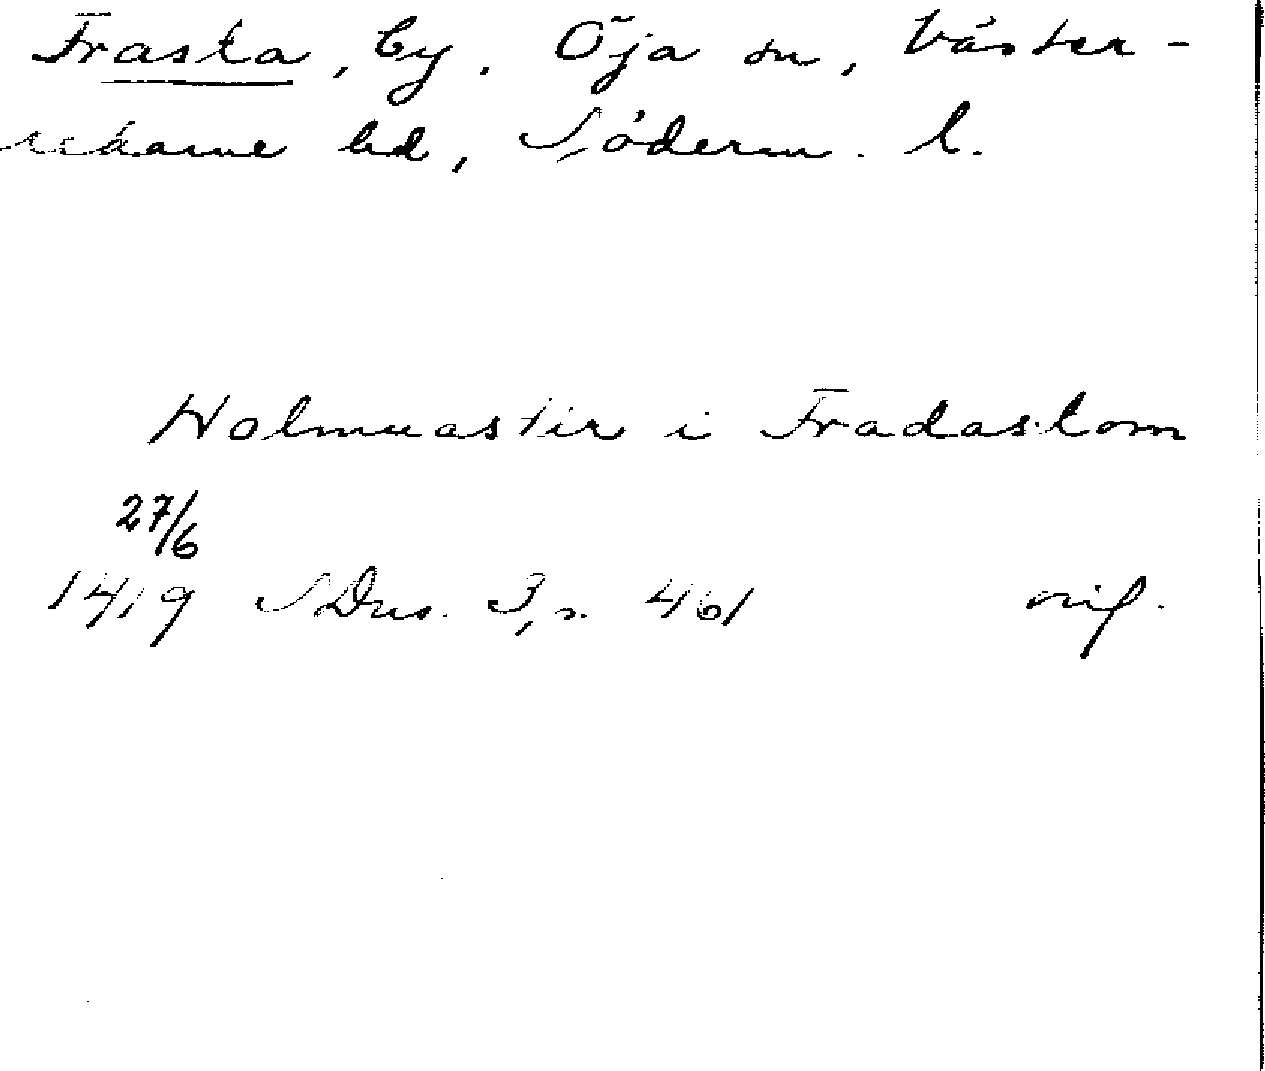 Frasta, by, Öja sn, Väster-
rekarne hd, Söderm. l.
Holmuastir i Fradastom
27/6
1419 SDns. 3, s. 461 orig.